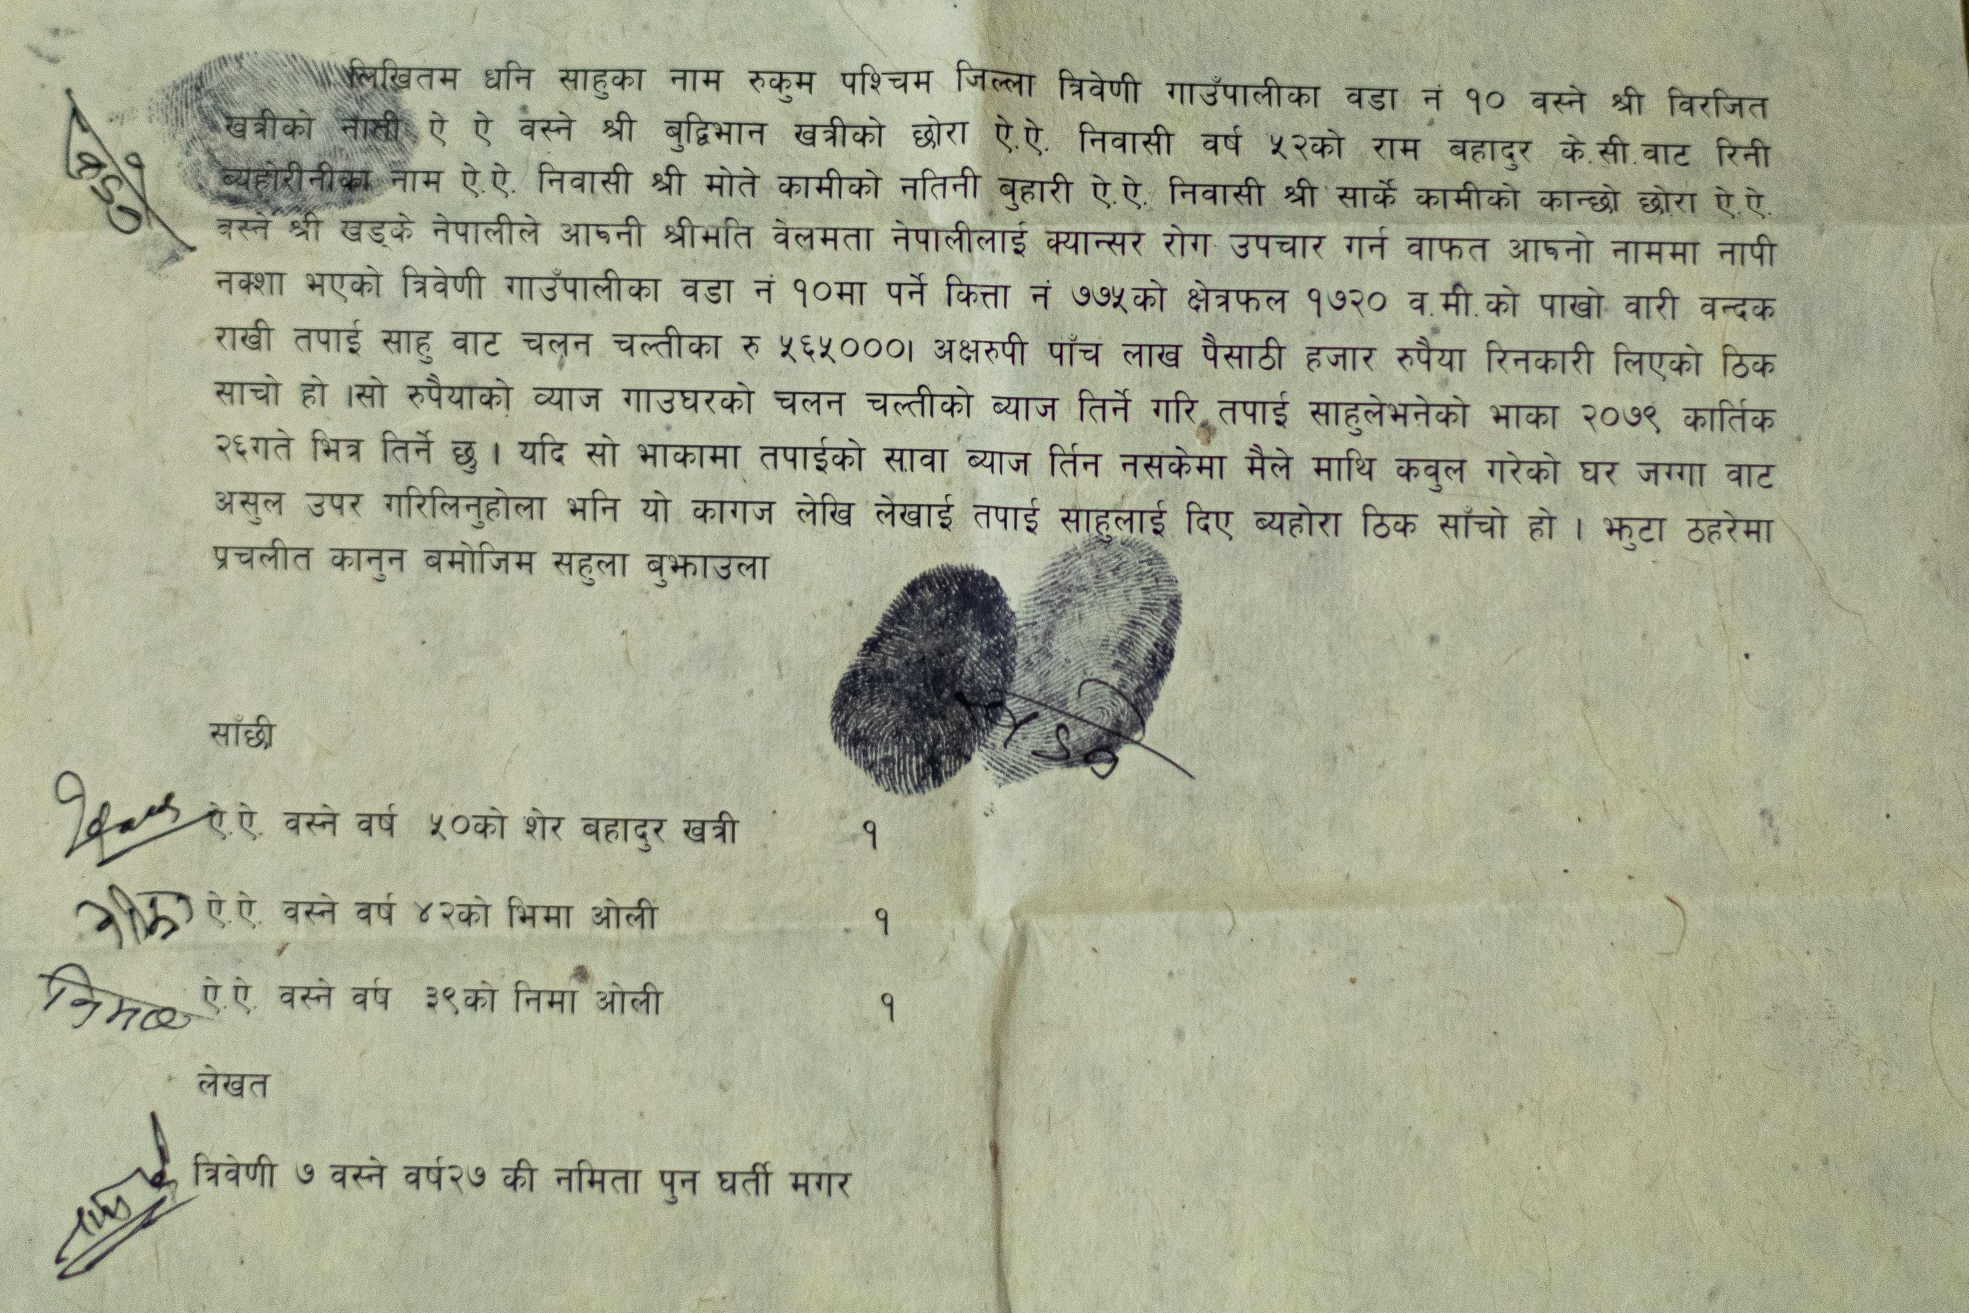 लिखितम धनि साहुका नाम रुकुम पश्चिम जिल्ला त्रिवेणी गाउँपालीका वडा नं १० वस्ने श्री विरजित
खत्रीको नाती ऐ ऐ वस्ने श्री बुद्धिभान खत्रीको छोरा ऐ.ऐ. निवासी वर्ष ५२को राम बहादुर के.सी.वाट रिनी
ब्यहोरीनीका नाम ऐ.ऐ. निवासी श्री मोते कामीको नतिनी बुहारी ऐ.ऐ. निवासी श्री सार्के कामीको कान्छो छोरा ऐ.ऐ.
वस्ने श्री खड्के नेपालीले आफ्नी श्रीमति वेलमता नेपालीलाई क्यान्सर रोग उपचार गर्न वाफत आफ्नो नाममा नापी
नक्शा भएको त्रिवेणी गाउँपालीका वडा नं १०मा पर्ने कित्ता नं ७७५को क्षेत्रफल १७२० व.मी.को पाखो वारी वन्दक
राखी तपाई साहु वाट चलन चल्तीका रु ५६५०००। अक्षरुपी पाँच लाख पैसाठी हजार रुपैया रिनकारी लिएको ठिक
साचो हो ।सो रुपैयाको व्याज गाउघरको चलन चल्तीको ब्याज तिर्ने गरि तपाई साहुलेभनेको भाका २०७९ कार्तिक
२६गते भित्र तिर्ने छु । यदि सो भाकामा तपाईको सावा ब्याज र्तिन नसकेमा मैले माथि कवुल गरेको घर जग्गा वाट
असुल उपर गरिलिनुहोला भनि यो कागज लेखि लेखाई तपाई साहुलाई दिए ब्यहोरा ठिक साँचो हो । झुटा ठहरेमा
प्रचलीत कानुन बमोजिम सहुला बुझाउला
साँछी
ऐ.ऐ. वस्ने वर्ष ५०को शेर बहादुर खत्री १
ऐ.ऐ. वस्ने वर्ष ४२को भिमा ओली १
ऐ.ऐ. वस्ने वर्ष ३९को निमा ओली १
लेखत
त्रिवेणी ७ वस्ने वर्ष२७ की नमिता पुन घर्ती मगर